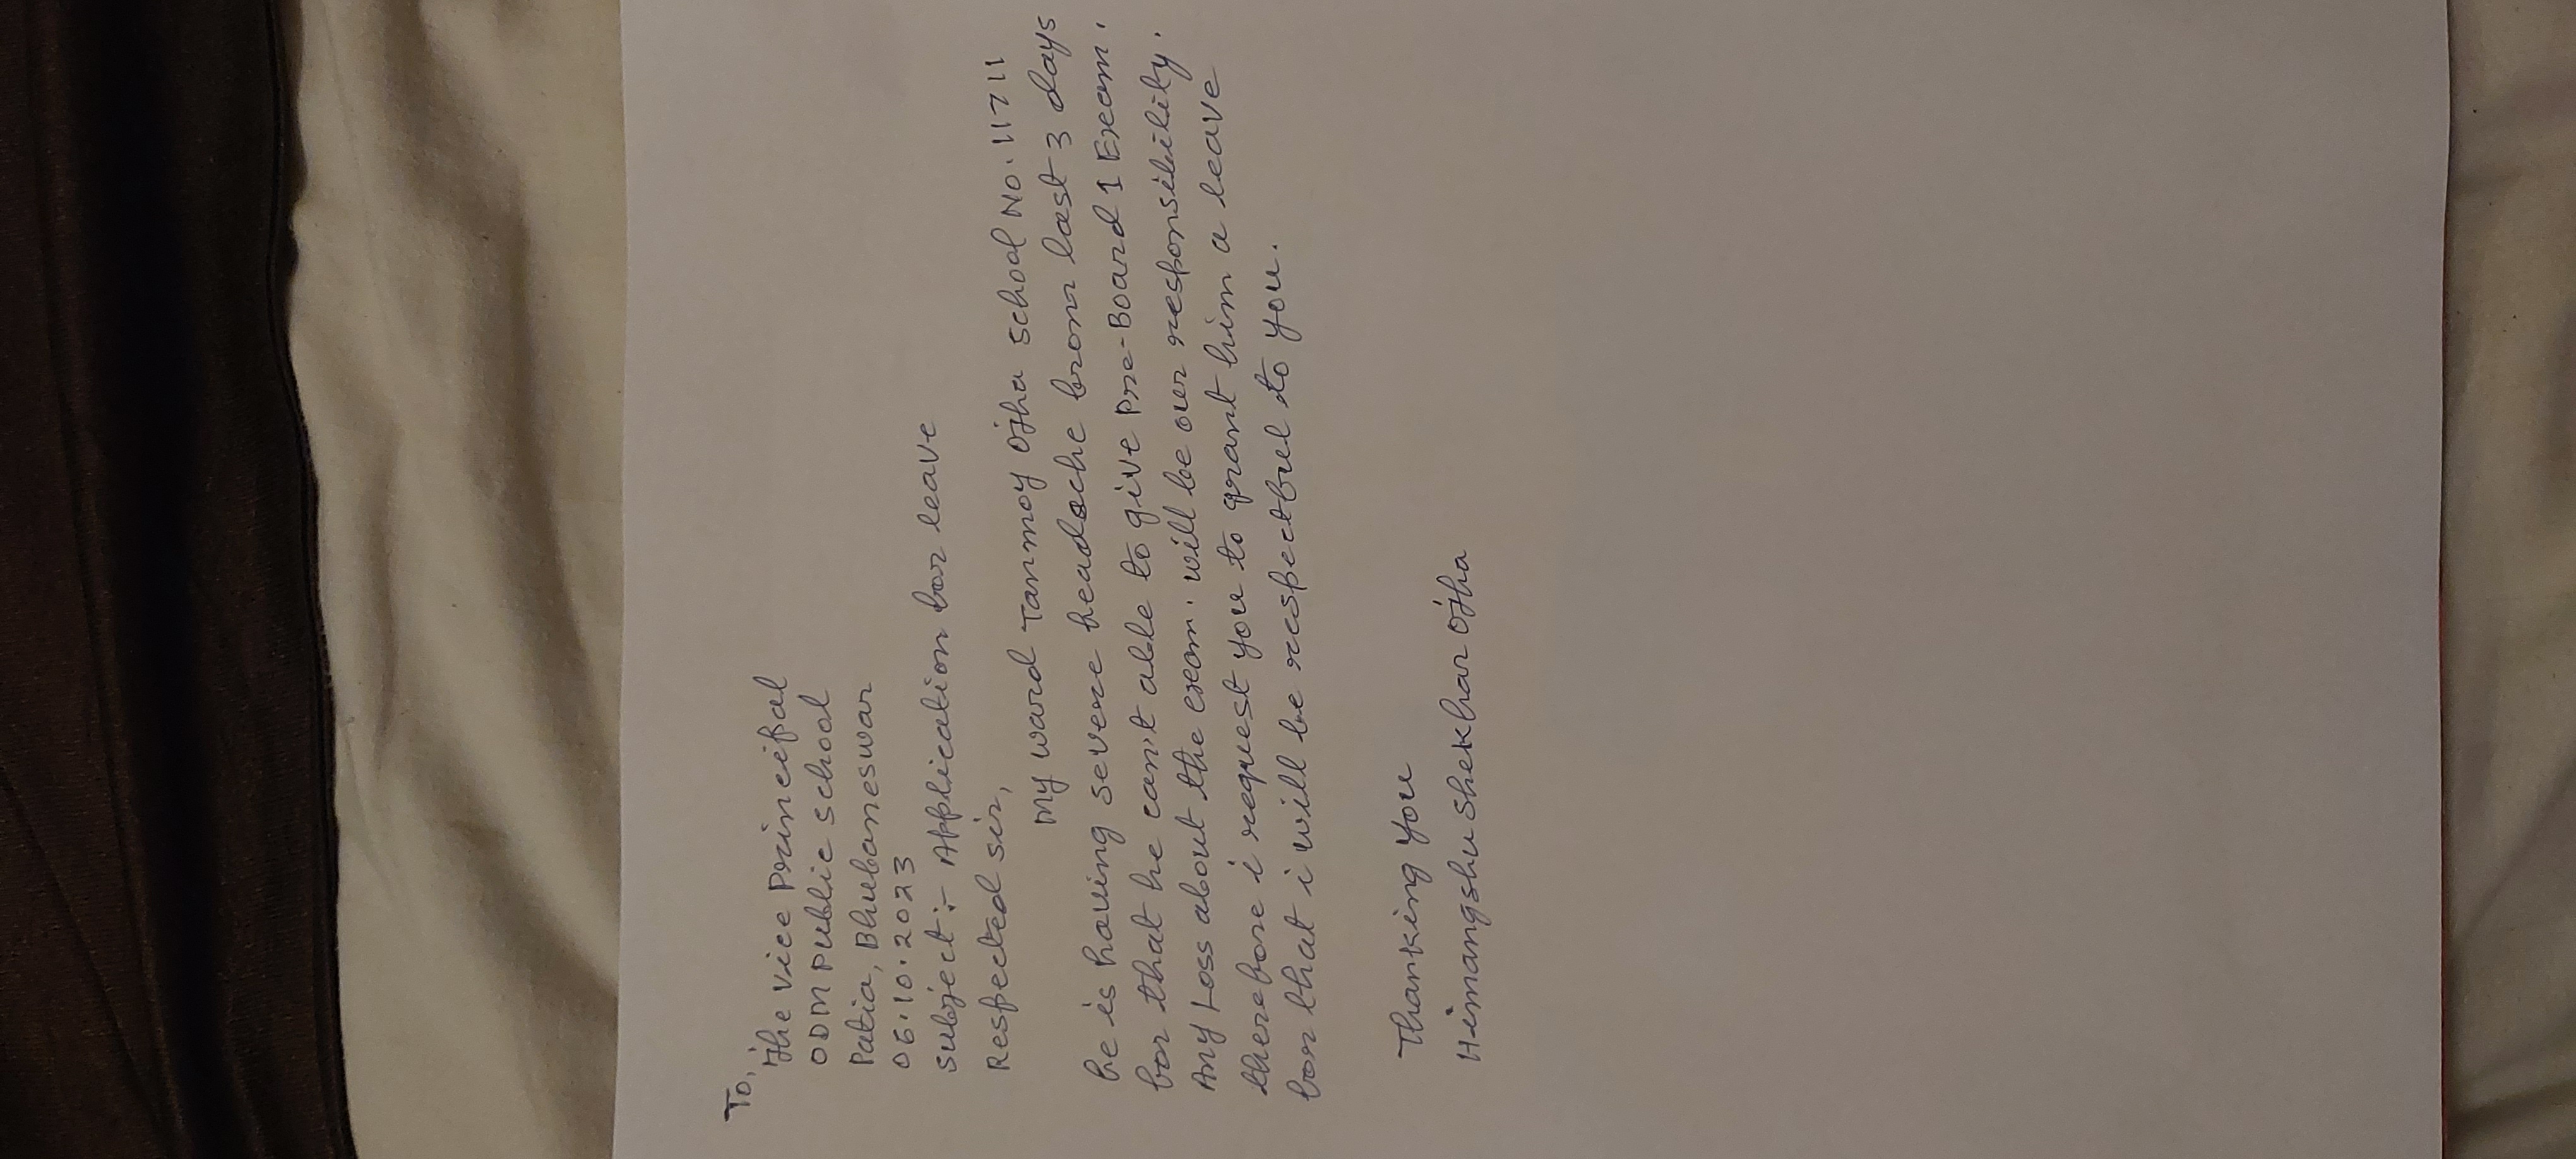 To,
The Vice Principal
ODM Public School
Patia, Bhubaneswar
06.10.2023
Subject :- Application for leave
Respected sir,
My ward Tanmoy Ojha school No. 11711
he is having severe headache from last 3 days
for that he can't able to give Pre-Board 1 Exam.
Any Loss about the exam. will be our responsibility.
therefore i request you to grant him a leave
for that i will be respectful to you.
Thanking You
Himangshu Shekhar Ojha